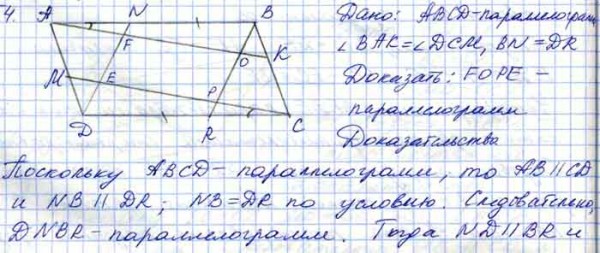 4.
A N B
F
O K
M E P
D R C
Дано: ABCD-параллелограмм
∠BAK=∠DCM, BN=DR
Доказать: FOPE –
параллелограмм
Доказательства
Поскольку ABCD- параллелограмм, то AB||CD
и NB || DR; NB=DR по условию. Следовательно,
DNBR-параллелограмм. Тогда ND||BR и